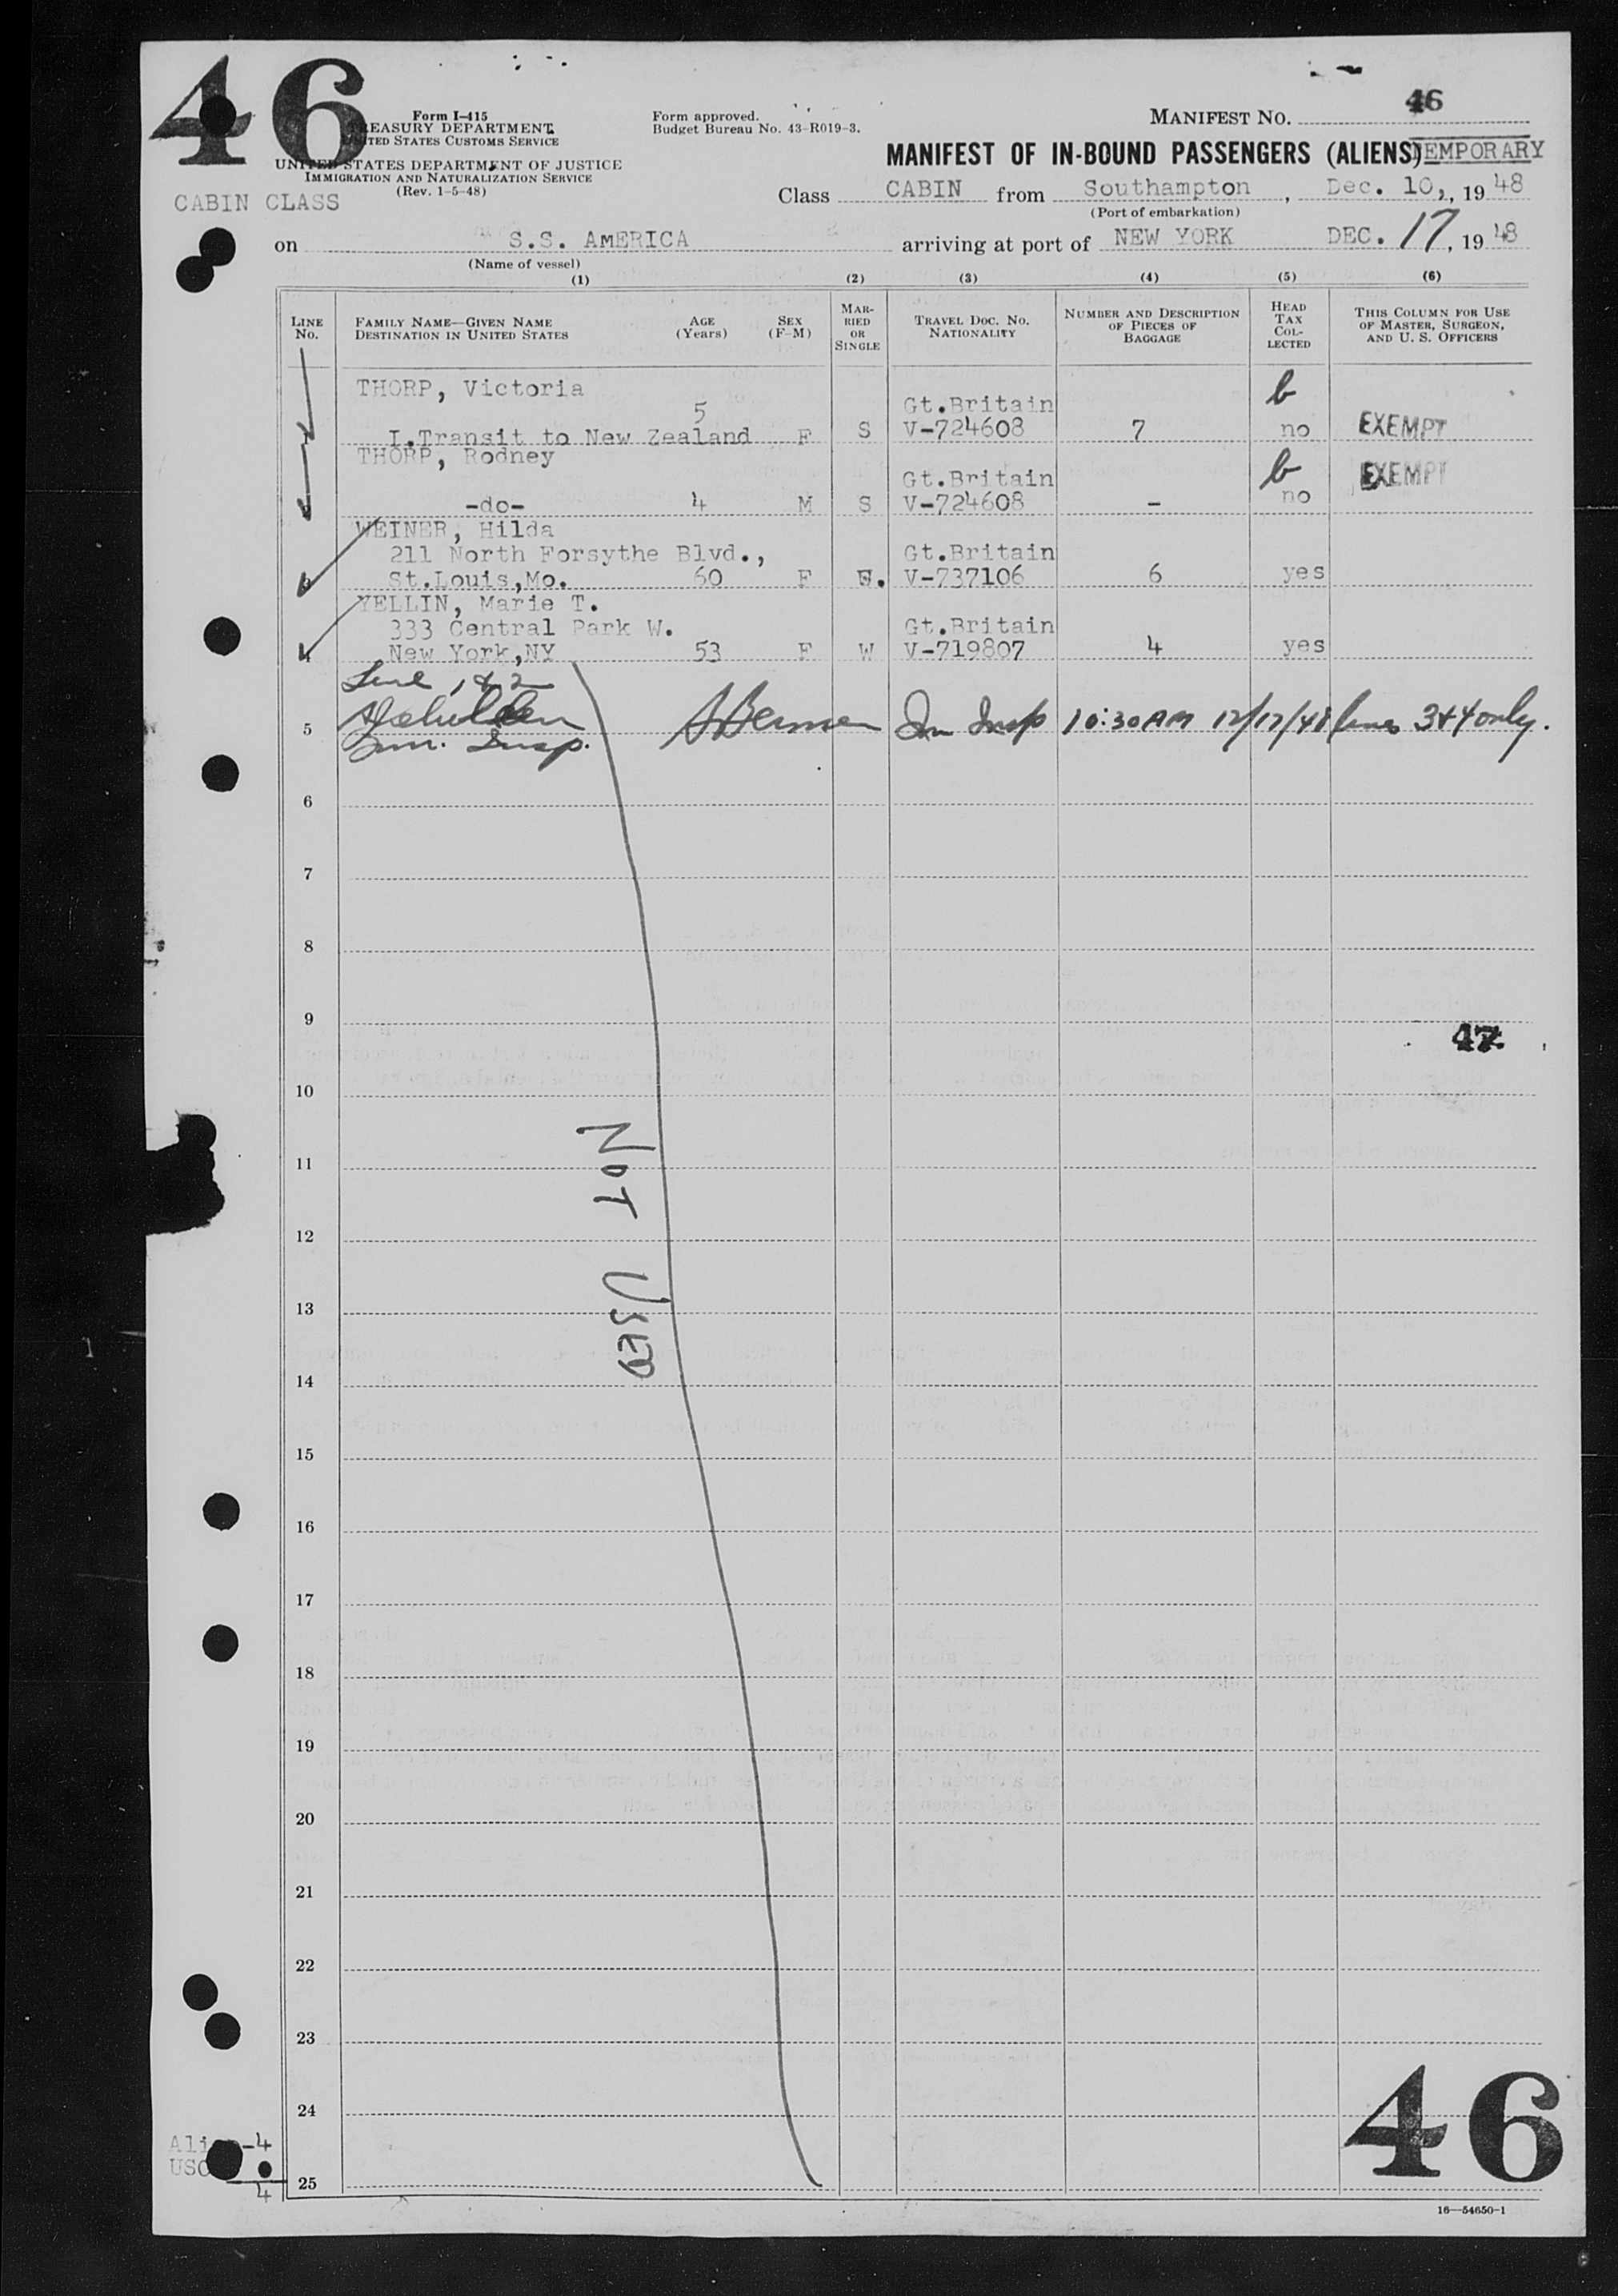 46
Form I-415
TREASURY DEPARTMENT
UNITED STATES CUSTOMS SERVICE
UNITED STATES DEPARTMENT OF JUSTICE
IMMIGRATION AND NATURALIZATION SERVICE
(Rev. 1-5-48)
CABIN CLASS
Form approved.
Budget Bureau No. 43-R019-3.
MANIFEST NO. 46
MANIFEST OF IN-BOUND PASSENGERS (ALIENS) TEMPORARY
Class CABIN from Southampton, Dec. 10,, 1948
(Port of embarkation)
on S.S. AMERICA arriving at port of NEW YORK DEC. 17, 1948
(Name of vessel)
(1) (2) (3) (4) (5) (6)
LINE No.
FAMILY NAME—GIVEN NAME
DESTINATION IN UNITED STATES
AGE (Years)
SEX (F-M)
MARRIED OR SINGLE
TRAVEL DOC. NO. NATIONALITY
NUMBER AND DESCRIPTION OF PIECES OF BAGGAGE
HEAD TAX COLLECTED
THIS COLUMN FOR USE OF MASTER, SURGEON, AND U. S. OFFICERS
THORP, Victoria b
5 Gt.Britain
I.Transit to New Zealand F S V-724608 7 no EXEMPT
THORP, Rodney b EXEMPT
Gt.Britain
-do- 4 M S V-724608 - no
WEINER, Hilda
211 North Forsythe Blvd., Gt.Britain
3 St.Louis,Mo. 60 F V-737106 6 yes
YELLIN, Marie T.
333 Central Park W. Gt.Britain
4 New York,NY 53 F W V-719807 4 yes
Line 1 & 2
5 SBerman Im Insp 10:30 AM 12/17/48 lines 3+4 only.
Imm. Insp.
6
7
8
9
47
10
11
12
13
NOT USED
14
15
16
17
18
19
20
21
22
23
24
25
Alien-4
USC
4
46
16—54650-1